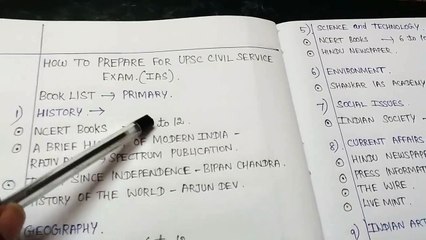 HOW TO PREPARE FOR UPSC CIVIL SERVICE
EXAM. (IAS).
BOOK LIST → PRIMARY.
1) HISTORY →
NCERT BOOKS to 12.
A BRIEF OF MODERN INDIA -
RAJIV SPECTRUM PUBLICATION.
SINCE INDEPENDENCE - BIPAN CHANDRA.
HISTORY OF THE WORLD - ARJUN DEV.
GEOGRAPHY.
5) SCIENCE and TECHNOLOGY
NCERT BOOKS → 6 to
HINDU NEWSPAPER.
6) ENVIRONMENT.
SHANKAR IAS ACADEMY
7) SOCIAL ISSUES
INDIAN SOCIETY -
8) CURRENT AFFAIRS
HINDU NEWSPAPE
PRESS INFORMAT
THE WIRE.
LIVE MINT.
9) INDIAN ART